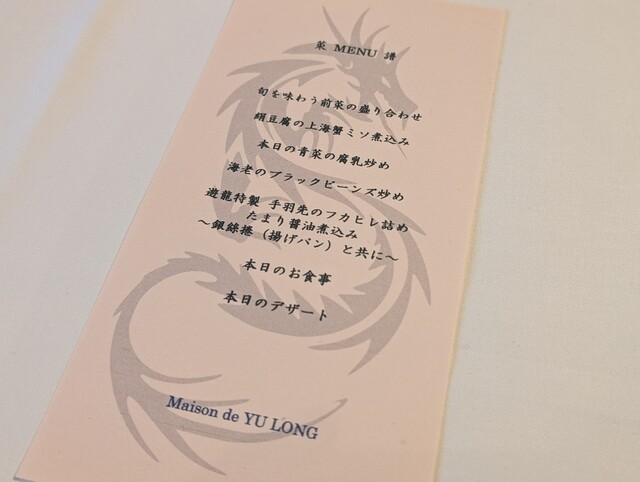 菜 MENU 譜
旬を味わう前菜の盛り合わせ
絹豆腐の上海蟹ミソ煮込み
本日の青菜の腐乳炒め
海老のブラックビーンズ炒め
遊龍特製 手羽先のフカヒレ詰め
たまり醤油煮込み
～銀絲捲（揚げパン）と共に～
本日のお食事
本日のデザート
Maison de YU LONG